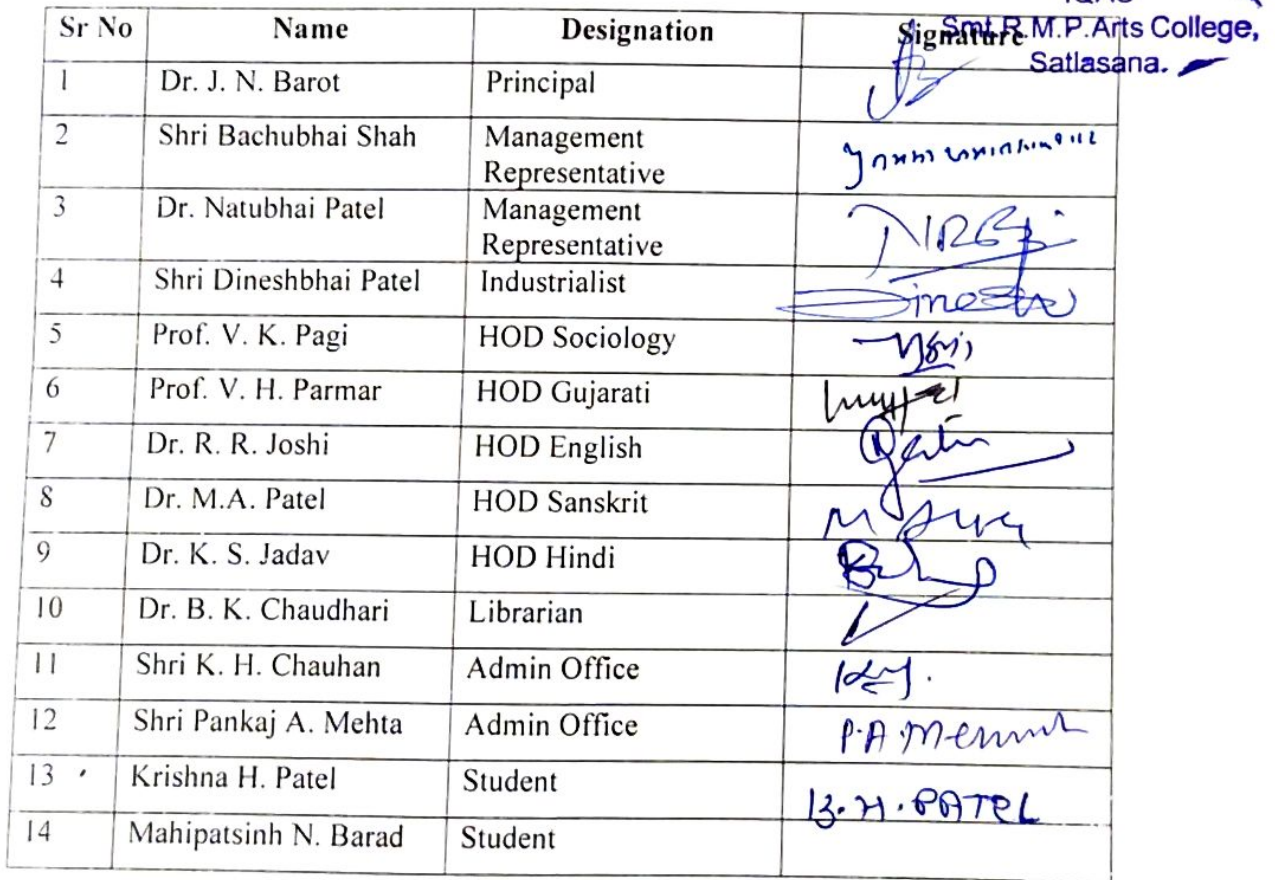 Smt.R.M.P.Arts College,
Satlasana.
Sr No Name Designation Signature
1 Dr. J. N. Barot Principal
2 Shri Bachubhai Shah Management
Representative
3 Dr. Natubhai Patel Management
Representative
4 Shri Dineshbhai Patel Industrialist
5 Prof. V. K. Pagi HOD Sociology
6 Prof. V. H. Parmar HOD Gujarati
7 Dr. R. R. Joshi HOD English
8 Dr. M.A. Patel HOD Sanskrit
9 Dr. K. S. Jadav HOD Hindi
10 Dr. B. K. Chaudhari Librarian
11 Shri K. H. Chauhan Admin Office
12 Shri Pankaj A. Mehta Admin Office
13 Krishna H. Patel Student K.H.PATEL
14 Mahipatsinh N. Barad Student